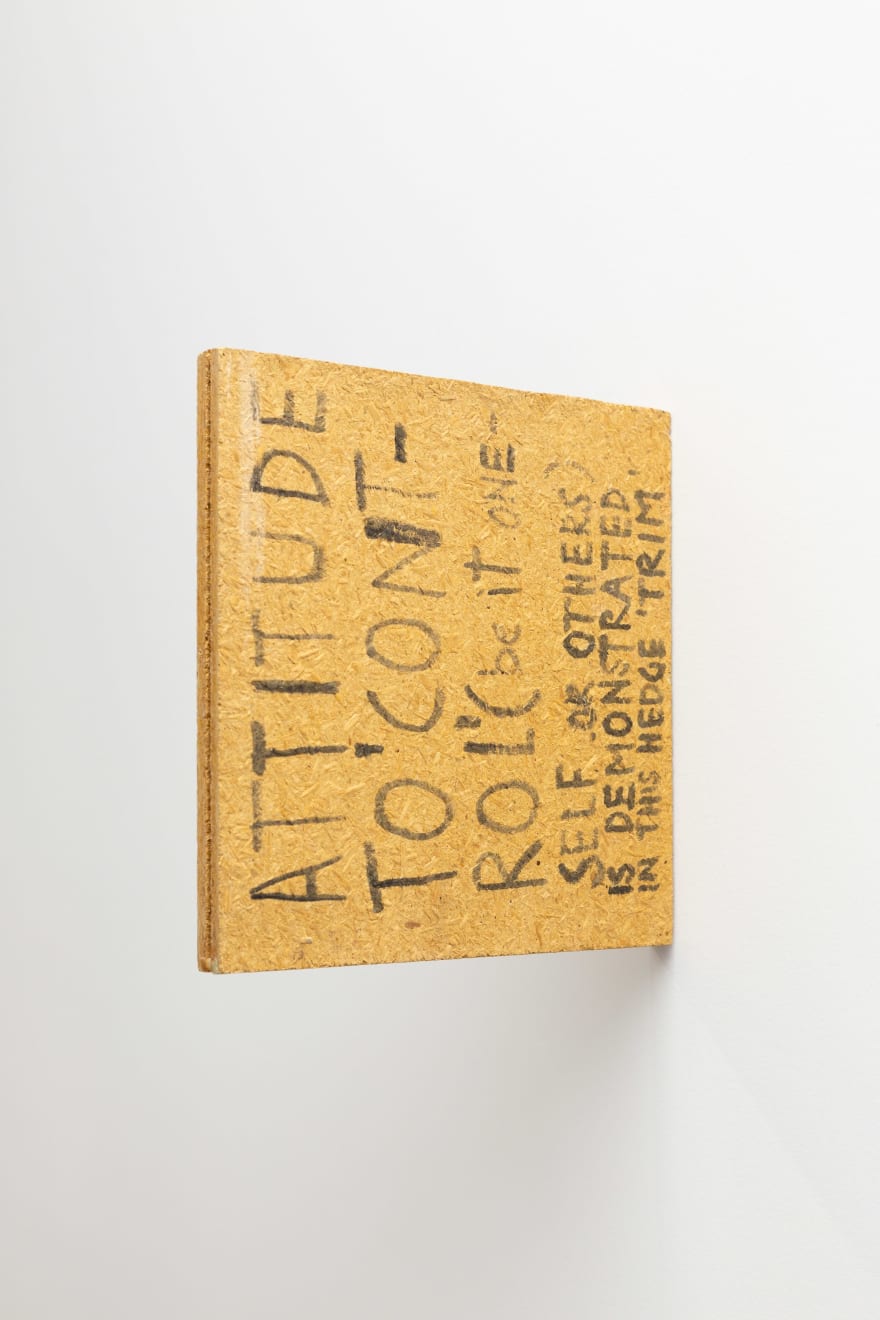 ATTITUDE
TO 'CONT-
ROL' (be it ONE-
SELF OR OTHERS)
IS DEMONSTRATED,
IN THIS HEDGE 'TRIM'